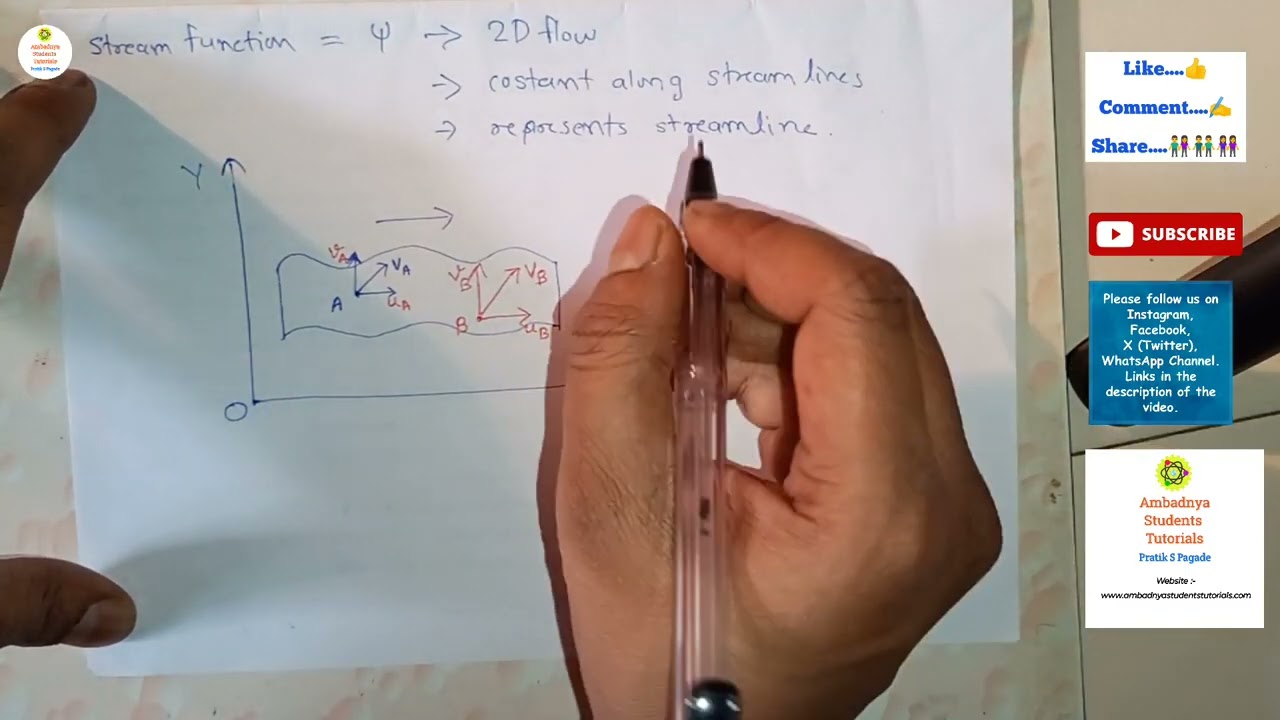 Ambadnya
Students
Tutorials
Pratik S Pagade
stream function = ψ → 2D flow
→ costant along streamlines
→ represents streamline.
Y
vA
VA
A
uA
vB
VB
B
uB
O
Like....👍
Comment....✍️
Share....👫👫👭
SUBSCRIBE
Please follow us on
Instagram,
Facebook,
X (Twitter),
WhatsApp Channel.
Links in the
description of the
video.
Ambadnya
Students
Tutorials
Pratik S Pagade
Website :-
www.ambadnyastudentstutorials.com